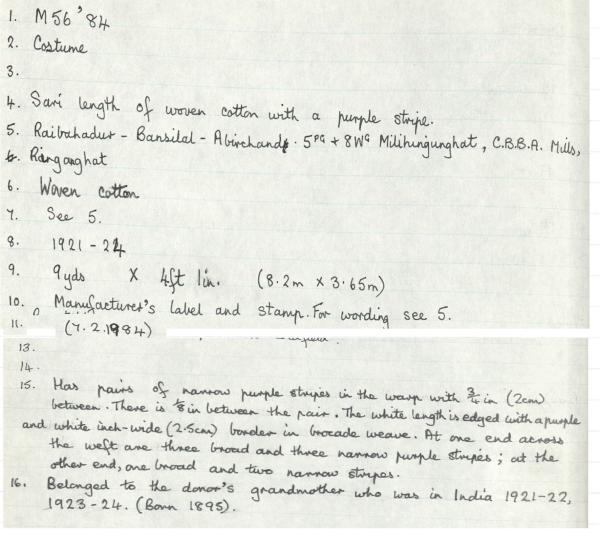 1. M56'84
2. Costume
3.
4. Sari length of woven cotton with a purple stripe.
5. Raibahadur - Bansilal - Abirchand. 5PG + 8WG Milihingunghat, C.B.B.A. Mills,
6. Ringanghat
6. Woven cotton
7. See 5.
8. 1921 - 24
9. 9yds X 4ft 1in. (8.2m X 3.65m)
10. Manufacturer's label and stamp. For wording see 5.
11. (7.2.1984)
13.
14.
15. Has pairs of narrow purple stripes in the warp with 3/4 in (2cm)
between. There is 1/8 in between the pair. The white length is edged with a purple
and white inch-wide (2.5cm) border in brocade weave. At one end across
the weft are three broad and three narrow purple stripes; at the
other end, one broad and two narrow stripes.
16. Belonged to the donor's grandmother who was in India 1921-22,
1923-24. (Born 1895).